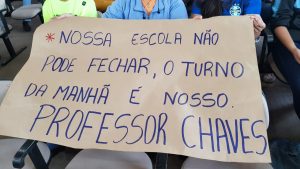 *NOSSA ESCOLA NÃO
PODE FECHAR, O TURNO
DA MANHÃ É NOSSO.
PROFESSOR CHAVES